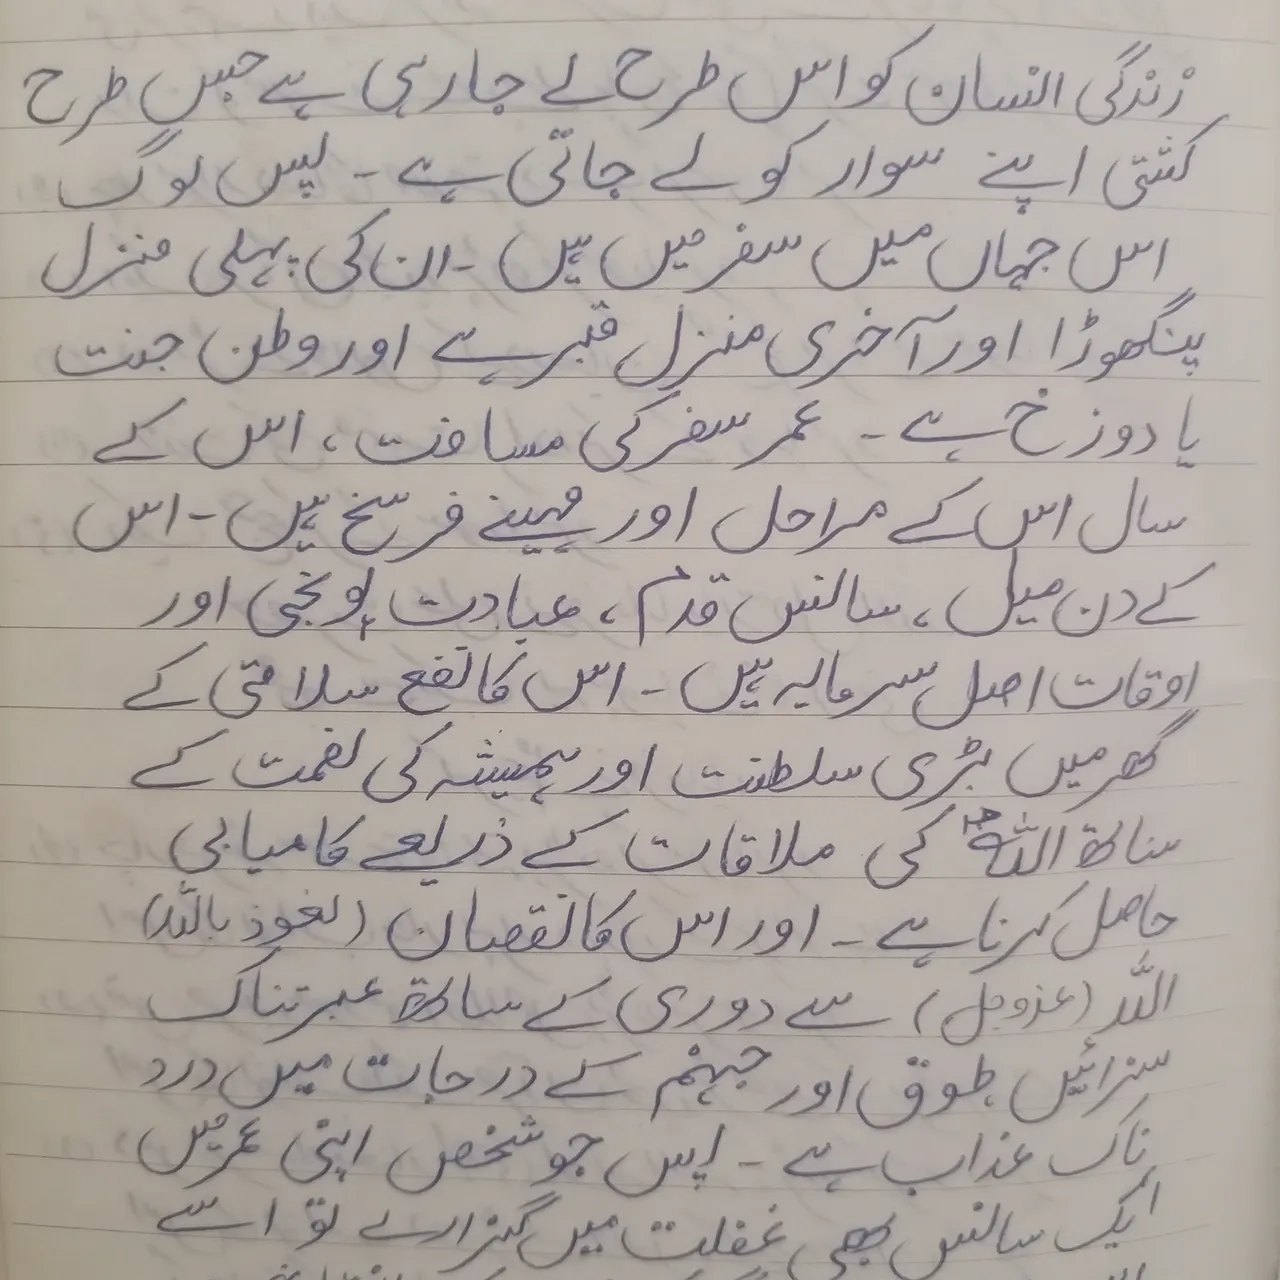 زندگی انسان کو اس طرح لے جا رہی ہے جس طرح
کشتی اپنے سوار کو لے جاتی ہے ۔ پس لوگ
اس جہاں میں سفر میں ہیں ۔ ان کی پہلی منزل
پنگھوڑا اور آخری منزل قبر ہے اور وطن جنت
یا دوزخ ہے ۔ عمر سفر کی مسافت ، اس کے
سال اس کے مراحل اور مہینے فرسخ ہیں ۔ اس
کے دن میل ، سانس قدم ، عبادت پونجی اور
اوقات اصل سرمایہ ہیں ۔ اس کا نفع سلامتی کے
گھر میں بڑی سلطنت اور ہمیشہ کی نعمت کے
ساتھ اللہ کی ملاقات کے ذریعے کامیابی
حاصل کرنا ہے ۔ اور اس کا نقصان (نعوذ باللہ)
اللہ (عزوجل) سے دوری کے ساتھ عبرتناک
سزائیں طوق اور جہنم کے درجات میں درد
ناک عذاب ہے ۔ پس جو شخص اپنی عمر میں
ایک سانس بھی غفلت میں گزارے تو اسے